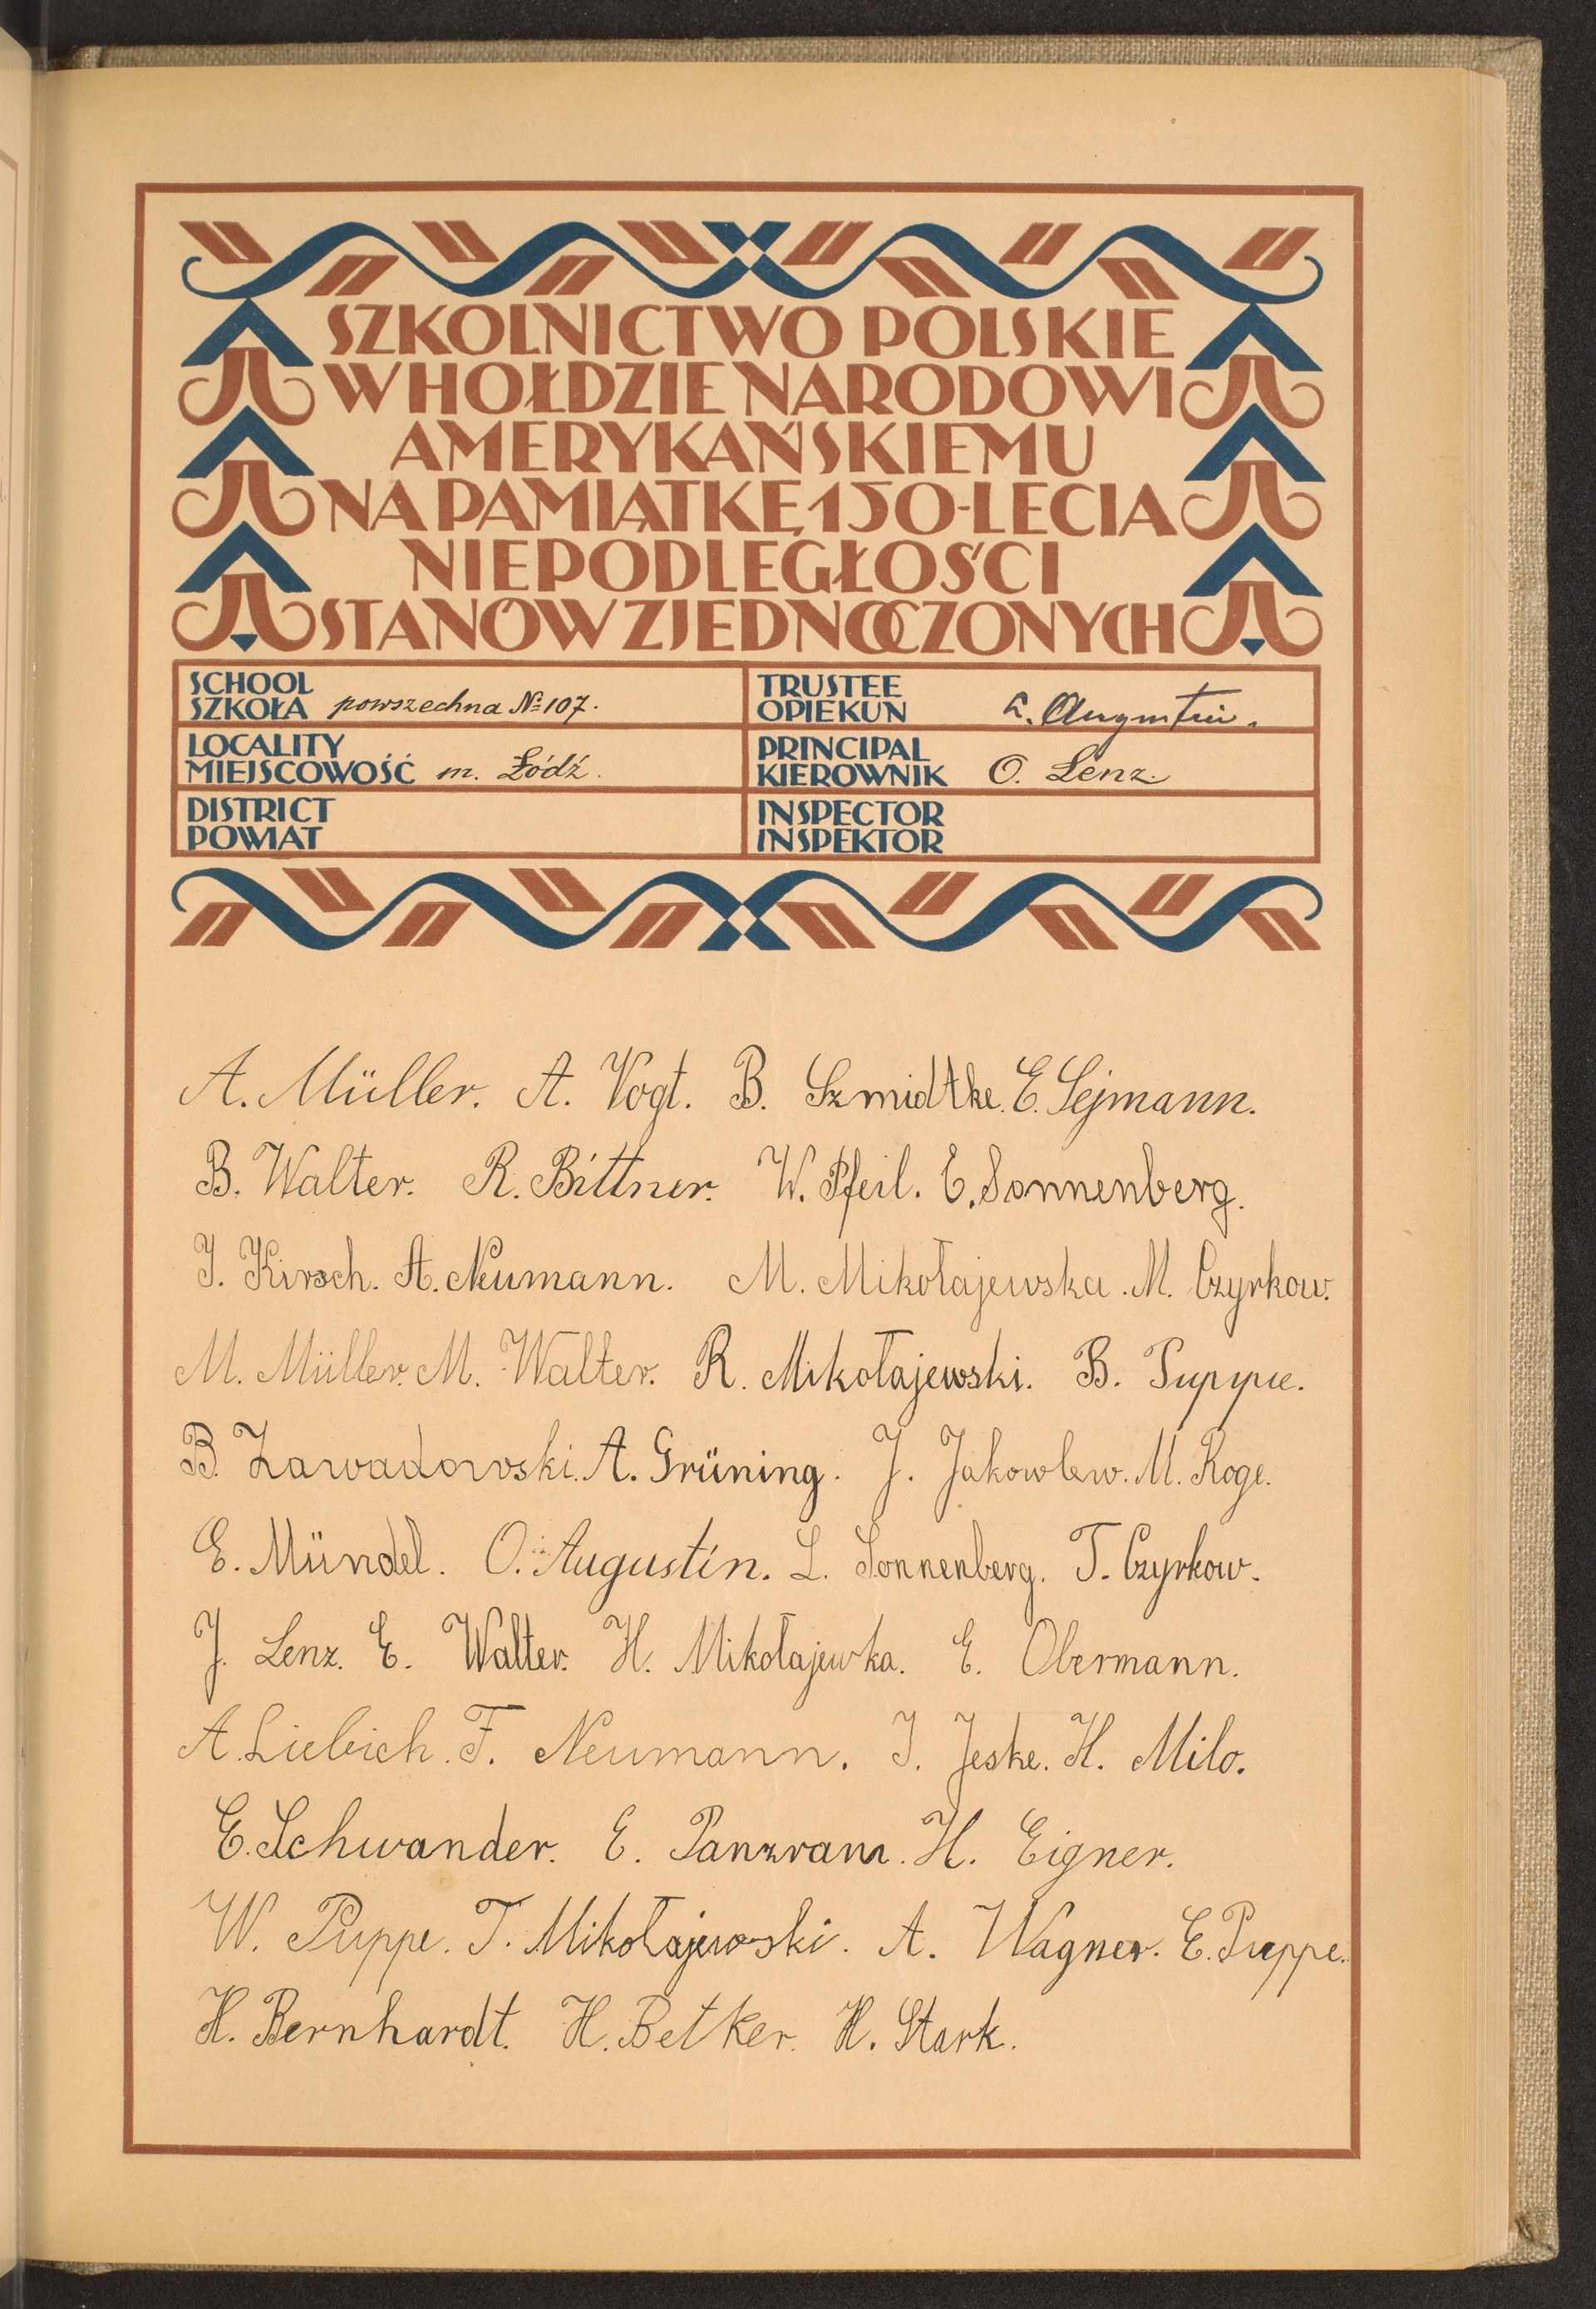 SZKOLNICTWO POLSKIE
W HOŁDZIE NARODOWI
AMERYKAŃSKIEMU
NA PAMIĄTKĘ 150-LECIA
NIEPODLEGŁOŚCI
STANÓW ZJEDNOCZONYCH
SCHOOL
SZKOŁA powszechna № 107.
TRUSTEE
OPIEKUN A. Augustin.
LOCALITY
MIEJSCOWOŚĆ m. Łódź.
PRINCIPAL
KIEROWNIK O. Lenz.
DISTRICT
POWIAT
INSPECTOR
INSPEKTOR
A. Müller. A. Vogt. B. Szmidtke. E. Sejmann.
B. Walter. R. Bittner. W. Pfeil. E. Sonnenberg.
J. Kirsch. A. Neumann. M. Mikołajewska. M. Czyrkow.
M. Müller. M. Walter. R. Mikołajewski. B. Puppe.
B. Zawadowski. A. Grüning. J. Jakowlew. M. Roge.
E. Mündel. O. Augustin. L. Sonnenberg. T. Czyrkow.
J. Lenz. E. Walter. H. Mikołajewka. E. Obermann.
A. Liebich. F. Neumann. J. Jeske. H. Milo.
E. Schwander. E. Panzram. H. Eigner.
W. Puppe. T. Mikołajewski. A. Wagner. E. Puppe.
H. Bernhardt. H. Betker. H. Stark.